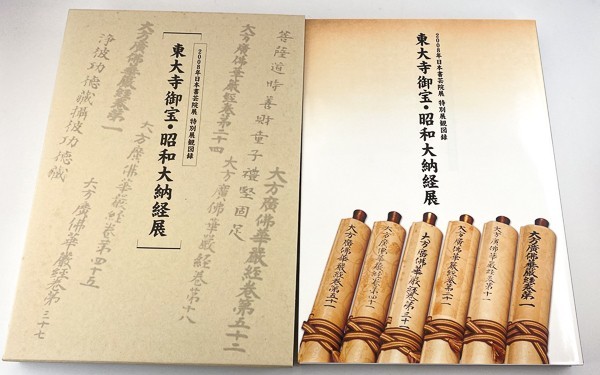 2008年日本書芸院展 特別展観図録
東大寺御宝・昭和大納経展
菩薩道時善財童子禮堅固足
大方廣佛華嚴経巻第五十二
大方廣佛華嚴経巻第二十四
大方廣佛華嚴経巻第十八
大方廣佛華嚴経巻第一
大方廣佛華嚴経巻第四十五
大方廣佛華嚴経巻第三十七
浄彼功徳藏攝彼功徳藏
2008年日本書芸院展 特別展観図録
東大寺御宝・昭和大納経展
大方廣佛華嚴経巻第一
大方廣佛華嚴経巻第十一
大方廣佛華嚴経巻第二十一
大方廣佛華嚴経巻第三十一
大方廣佛華嚴経巻第四十一
大方廣佛華嚴経巻第五十一